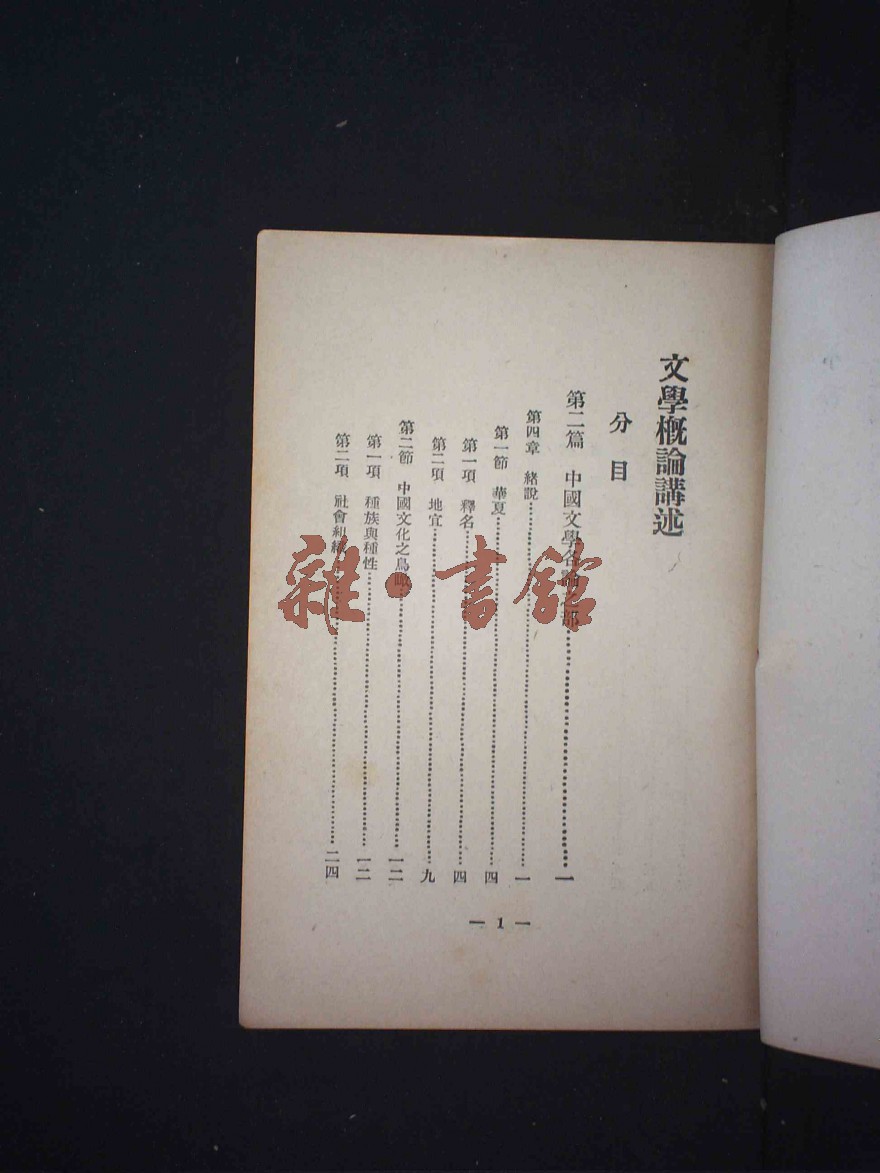 文學概論講述
分目
第二篇 中國文學各論之部……一
第四章 緒說……一
第一節 華夏……四
第一項 釋名……四
第二項 地宜……九
第二節 中國文化之鳥瞰……一二
第一項 種族與種性……一二
第二項 社會組織……二四
— 1 —
雜·書館